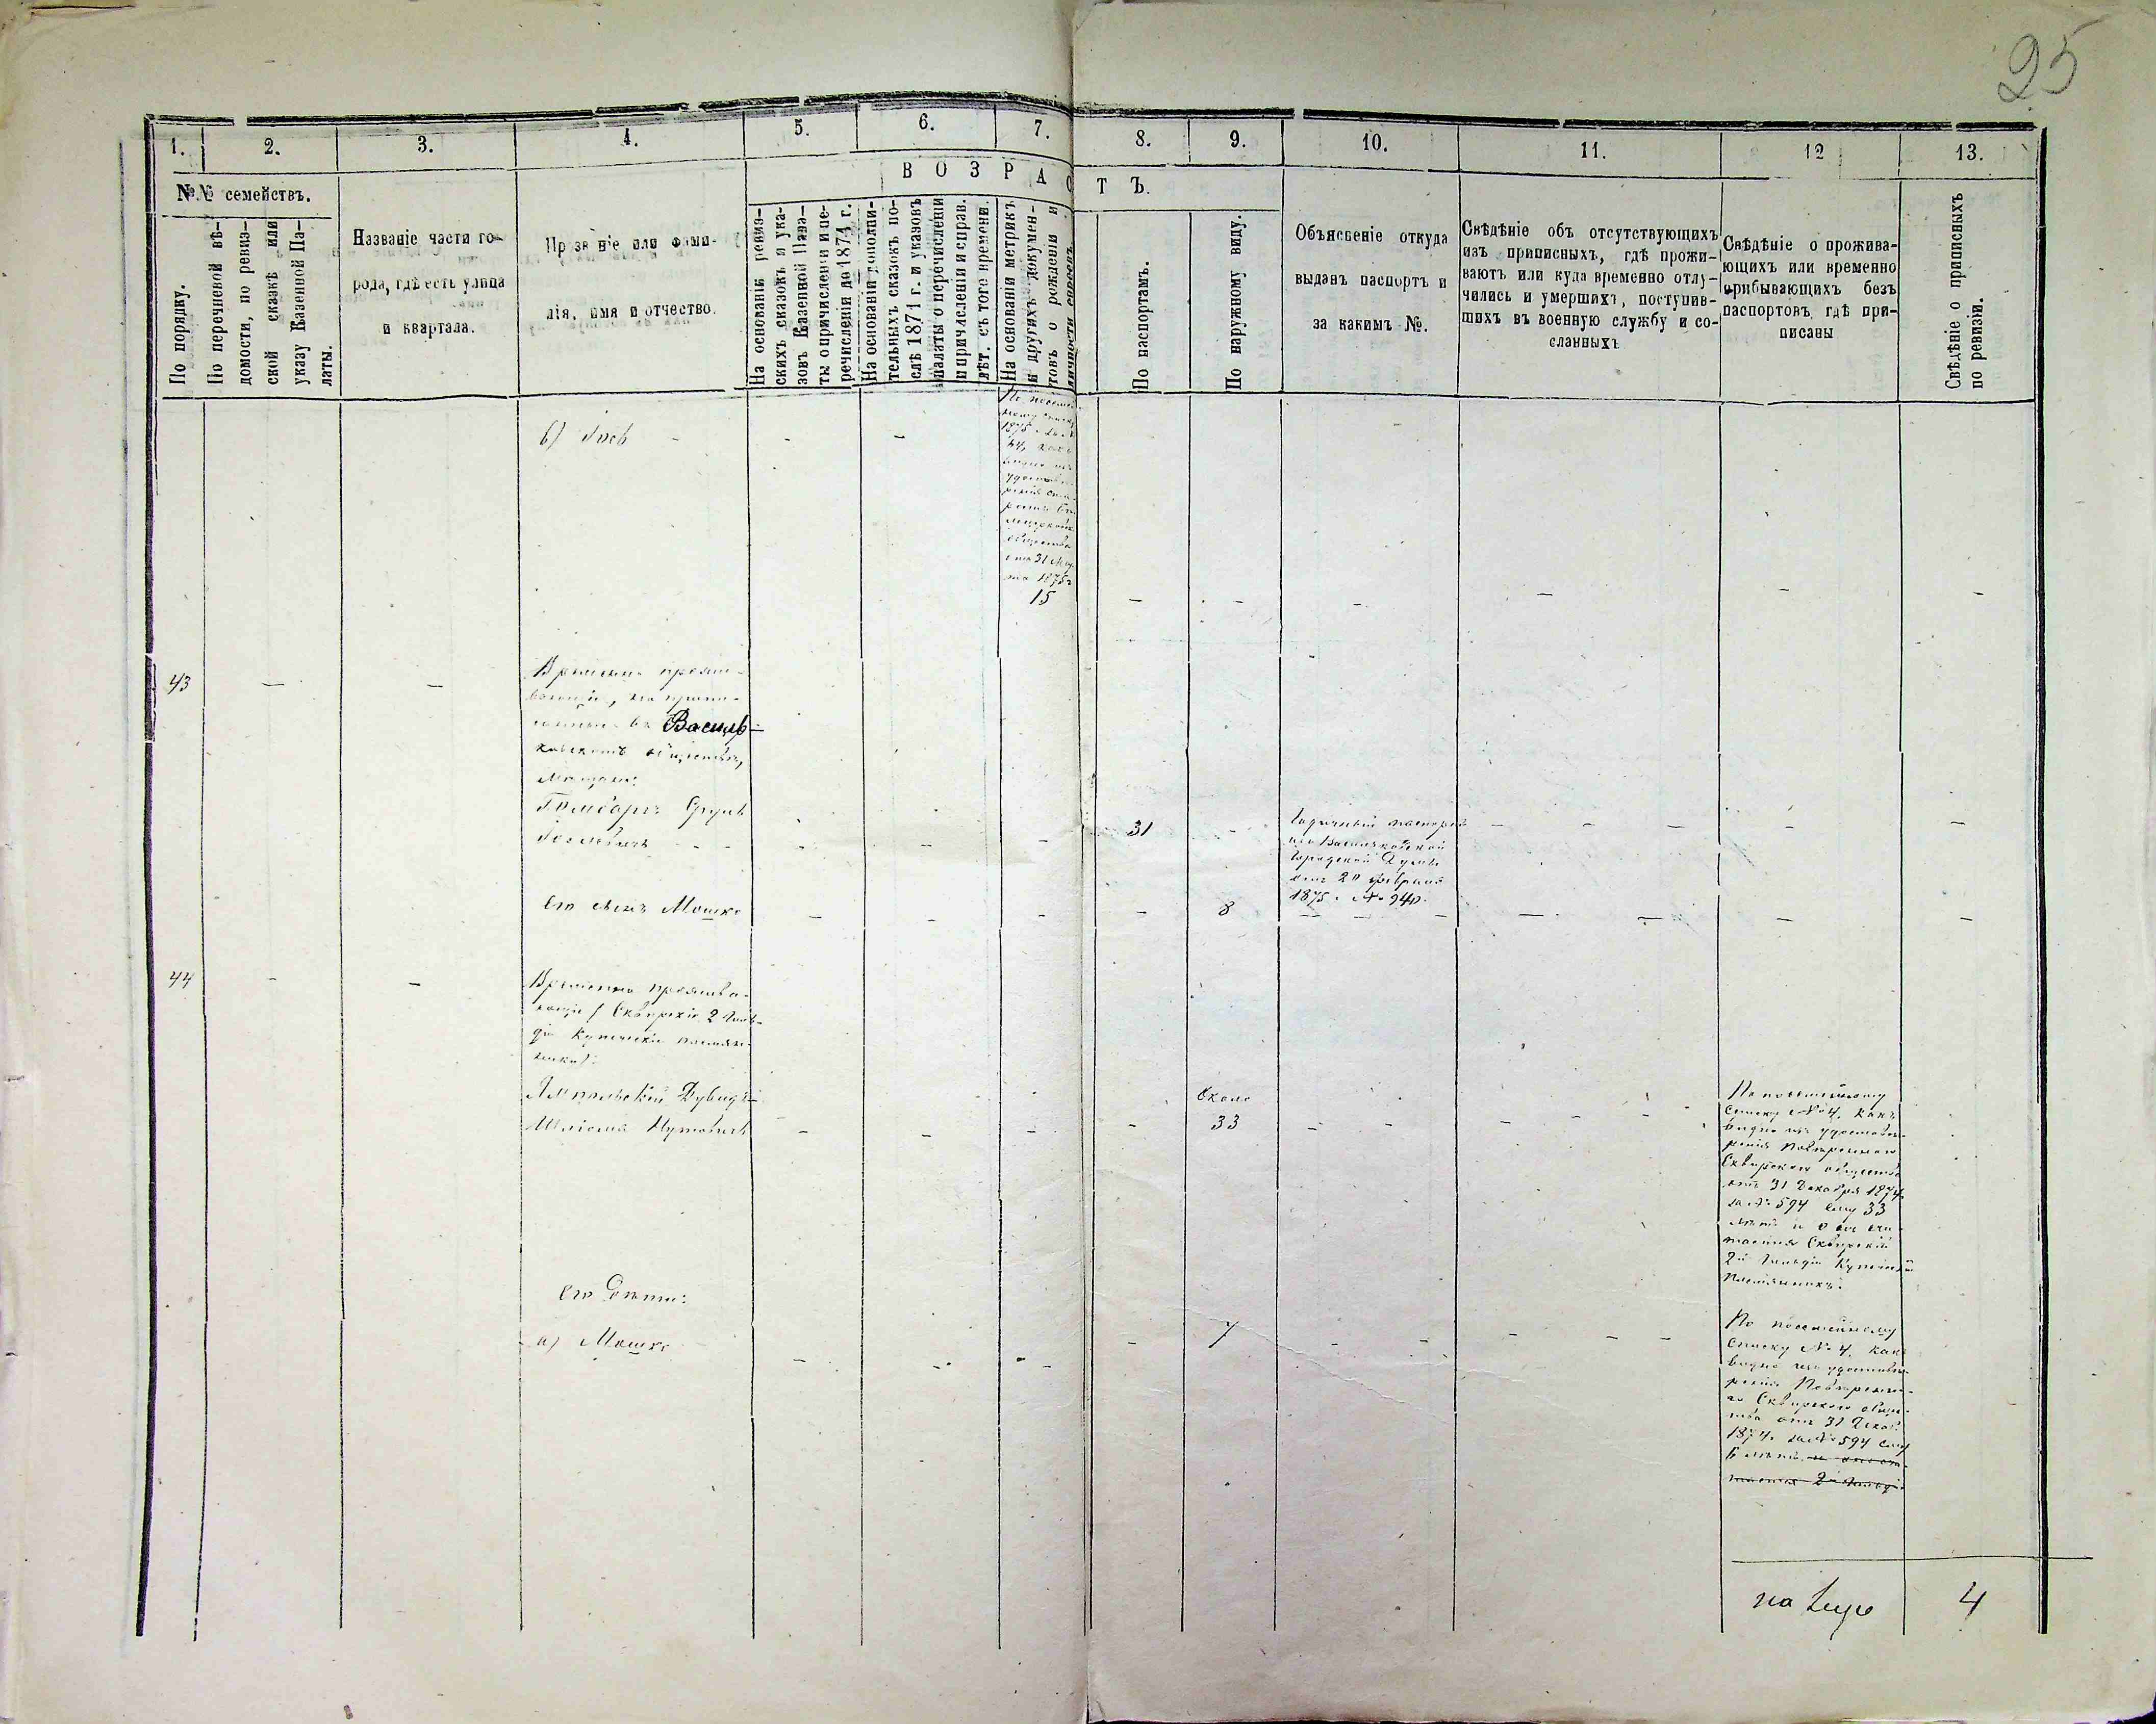 25
1. 2. 3. 4. 5. 6. 7. 8. 9. 10. 11. 12 13.
№№ семействъ.
По порядку.
По перечневой вѣ-
домости, по ревиз-
ской сказкѣ или
указу Казенной Па-
латы.
Названіе части го-
рода, гдѣ есть улица
и квартала.
Прозваніе или фами-
лія, имя и отчество.
ВОЗРАСТЪ.
На основаніи ревиз-
скихъ сказокъ и ука-
зовъ Казенной Пала-
ты о причисленіи и пе-
речисленіи до 1874 г.
На основаніи дополни-
тельныхъ сказокъ по-
слѣ 1871 г. и указовъ
палаты о перечисленіи
и причисленіи и справ.
лѣт. съ того времени.
На основаніи метрикъ
и другихъ докумен-
товъ о рожденіи и
личности евреевъ
По паспортамъ.
По наружному виду.
Объясненіе откуда
выданъ паспортъ и
за какимъ №.
Свѣдѣніе объ отсутствующихъ
изъ приписныхъ, гдѣ прожи-
ваютъ или куда временно отлу-
чились и умершихъ, поступив-
шихъ въ военную службу и со-
сланныхъ
Свѣдѣніе о прожива-
ющихъ или временно
прибывающихъ безъ
паспортовъ гдѣ при-
писаны
Свѣдѣніе о приписныхъ
по ревизіи.
1875
общества
31
1875
15
43
Временно прожи-
вающіи,
въ Василь-
ковскомъ обществѣ,
Мѣщане:
Сруль
31
Годичный паспортъ
изъ Васильковской
Городской Думы
отъ 20 февраля
1875. № 940.
Его сынъ Мошко
8
44
Временно прожива-
ющіе (Сквирскіе 2 Гиль-
діи Купеческіе племян-
ники).
Ямпольскій Дувидъ-
Шліома Нутовичъ
около
33
По посемейному
списку № 4, какъ
видно изъ удостовѣ-
ренія повѣреннаго
Сквирскаго общества
отъ 31 Декабря 1874
за № 594 ему 33
лѣтъ и
Сквирскій
2й Гильдіи Купеческій
племянникъ.
Его Дѣти:
а) Мошко
7
По посемейному
списку № 4, какъ
видно изъ удостовѣ-
ренія Повѣренна-
го Сквирскаго обще-
ства отъ 31 Декаб.
1874. за № 594 ему
6 лѣтъ
2й Гильдіи
на лицо 4